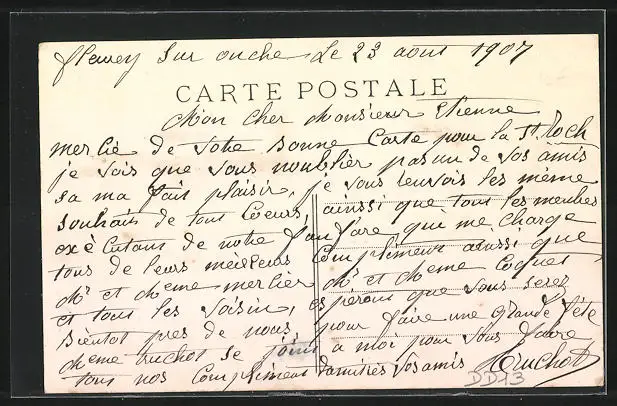 fleurey sur ouche Le 23 aout 1907
CARTE POSTALE
Mon cher Monsieur Etienne
mercie de votre Bonne Carte pour la St Roch
je vois que vous noublier pas un de vos amis
sa ma fait plaisir, je vous renvois les même
souhais de tous Coeurs, ainssi que tous les membres
exècutans de notre fanfare, qui me charge
tous de leurs meilleurs Complimens ainssi que
Mr et meme mercier Mr et meme Coquet
et tous les voisin, espérons que vous serez
Bientot pres de nous, pour faire une grande fête
meme truchot se joins a moi pour vous faire
tous nos Compliment damitiés vos amis Truchot
DD13